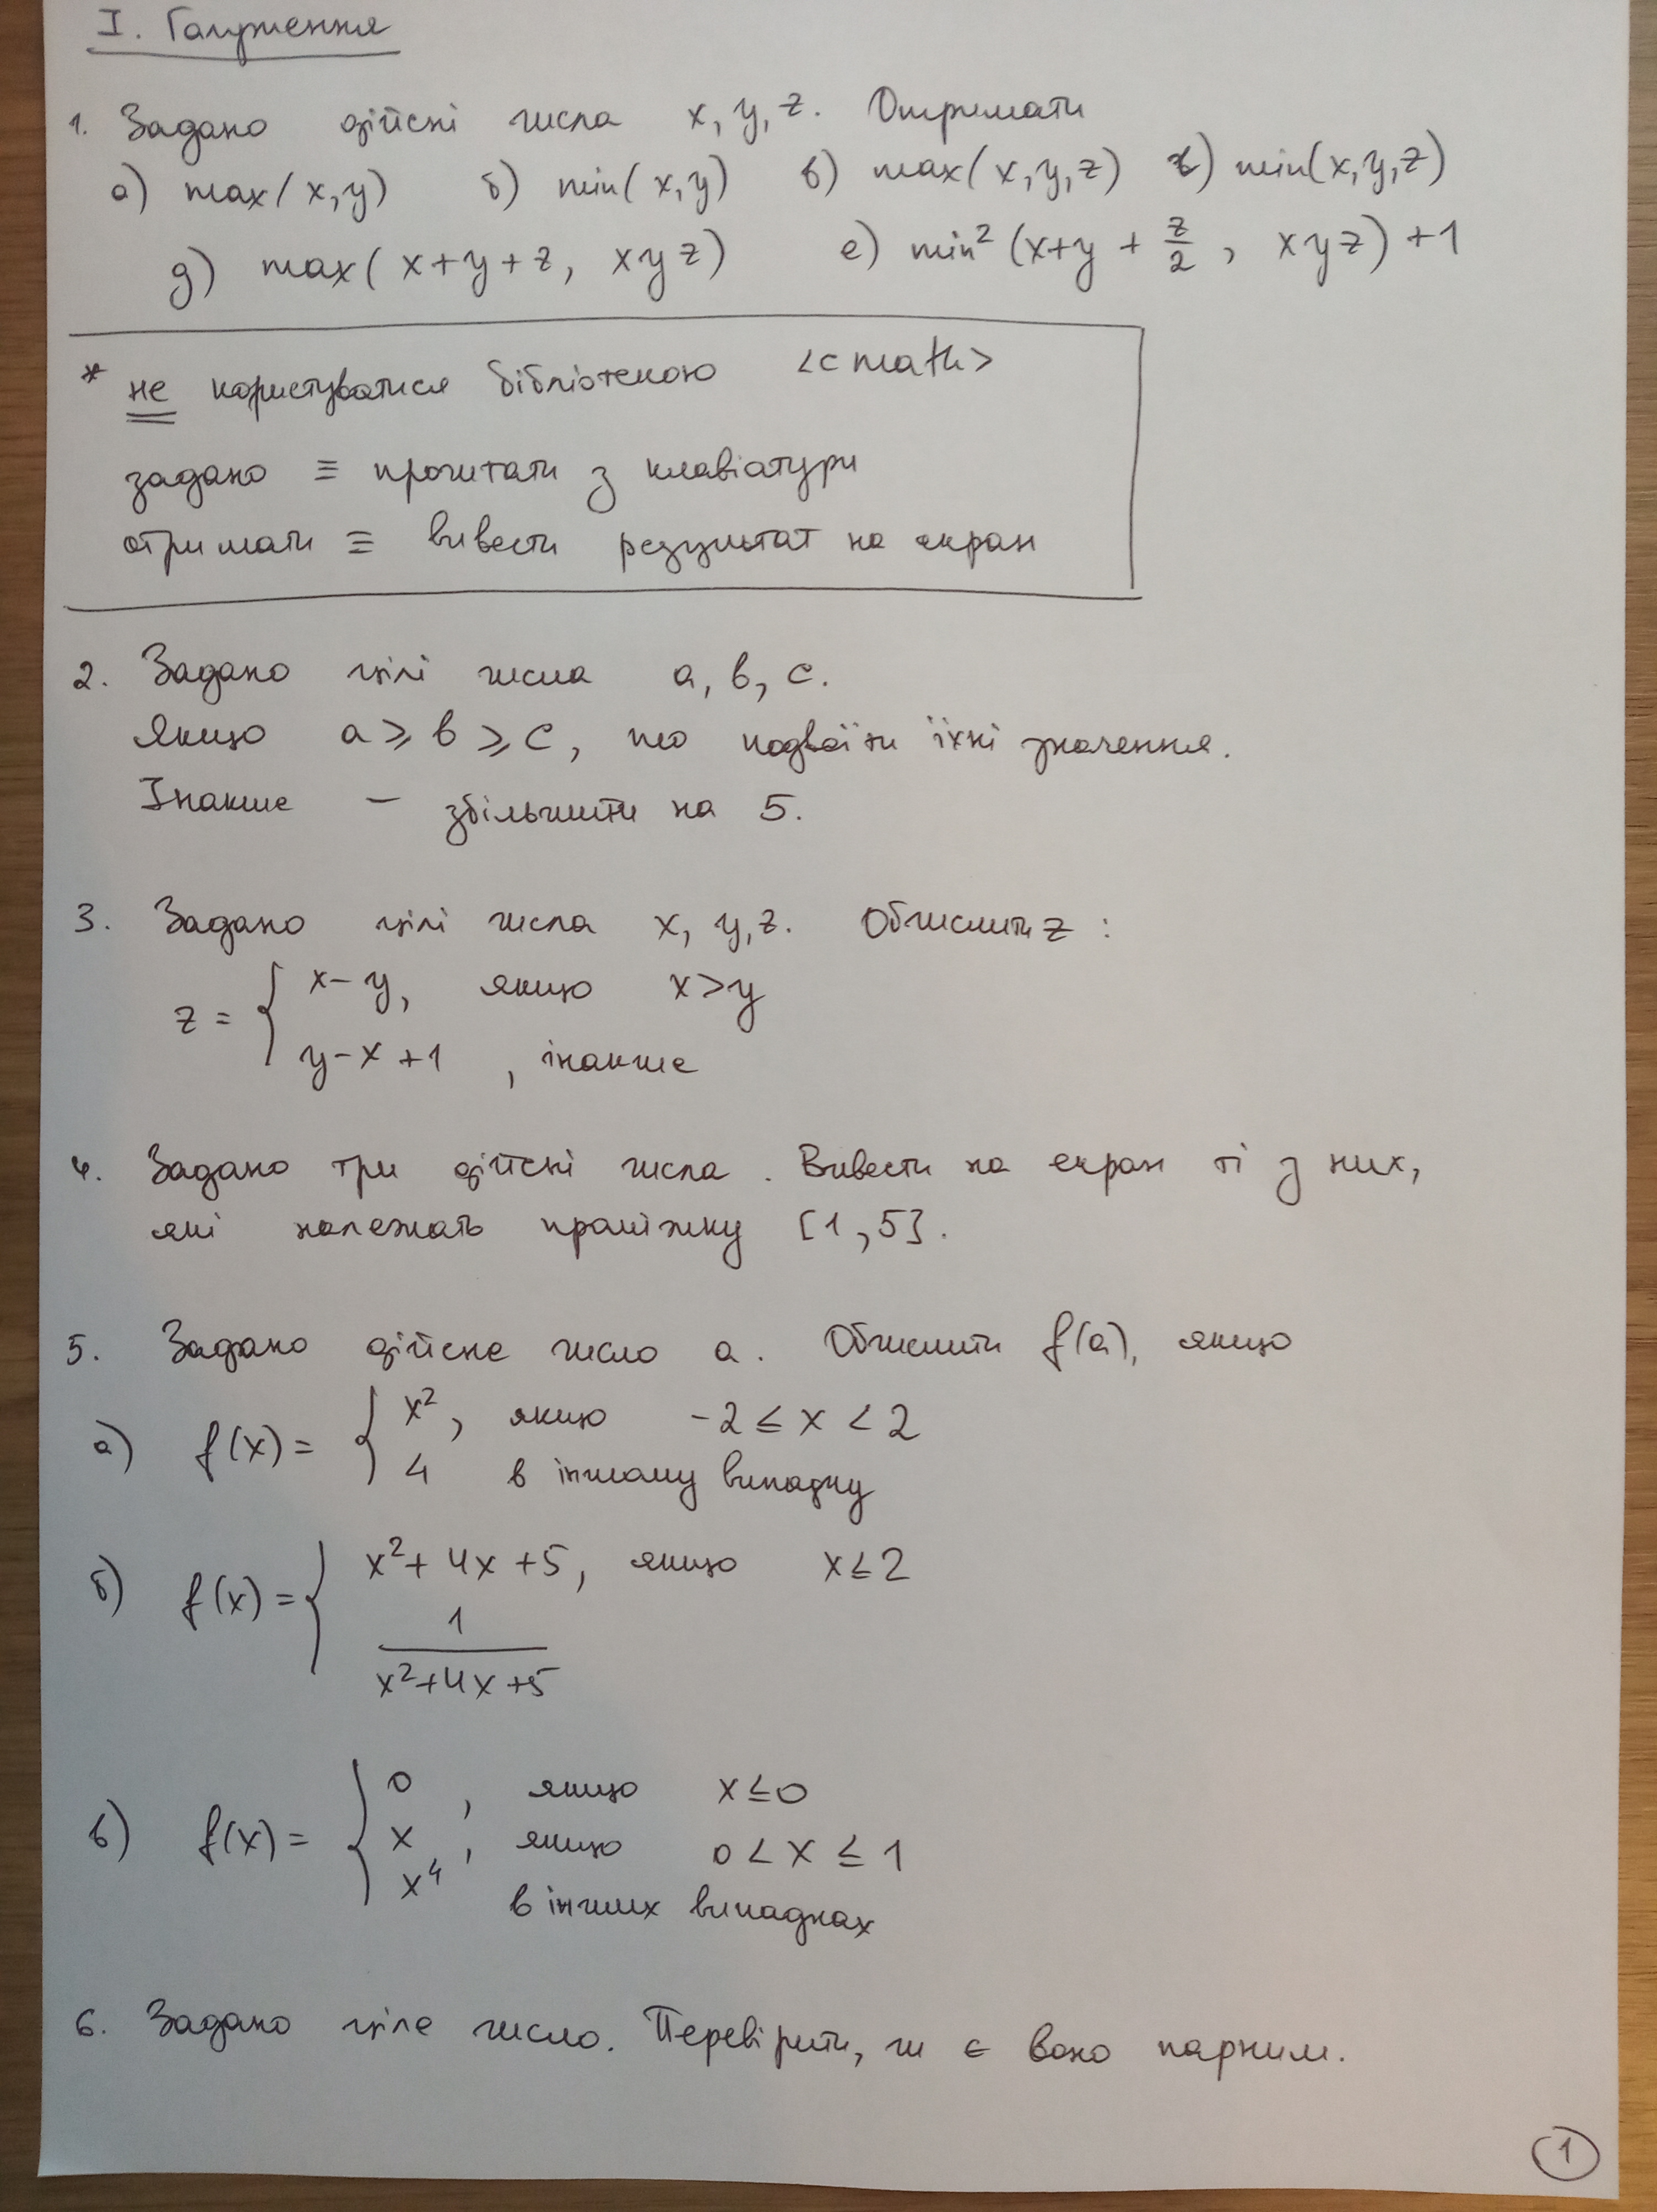 I. Галуження
1. Задано дійсні числа x, y, z. Отримати
а) max(x,y) б) min(x,y) в) max(x,y,z) г) min(x,y,z)
д) max(x+y+z, xyz) е) min² (x+y+z/2, xyz)+1
* не користуватися бібліотекою <cmath>
задано ≡ прочитати з клавіатури
отримати ≡ вивести результат на екран
2. Задано цілі числа a, b, c.
Якщо a ⩾ b ⩾ c, то подвоїти їхні значення.
Інакше – збільшити на 5.
3. Задано цілі числа x, y, z. Обчислити z :
z = { x-y, якщо x>y
y-x+1 , інакше
4. Задано три дійсні числа. Вивести на екран ті з них,
які належать проміжку [1,5].
5. Задано дійсне число a. Обчислити f(a), якщо
а) f(x) = { x², якщо -2 ≤ x < 2
4 в іншому випадку
б) f(x) = { x²+4x+5, якщо x≤2
1/(x²+4x+5)
в) f(x) = { 0 , якщо x≤0
x , якщо 0 < x ≤ 1
x⁴ в інших випадках
6. Задано ціле число. Перевірити, чи є воно парним.
1